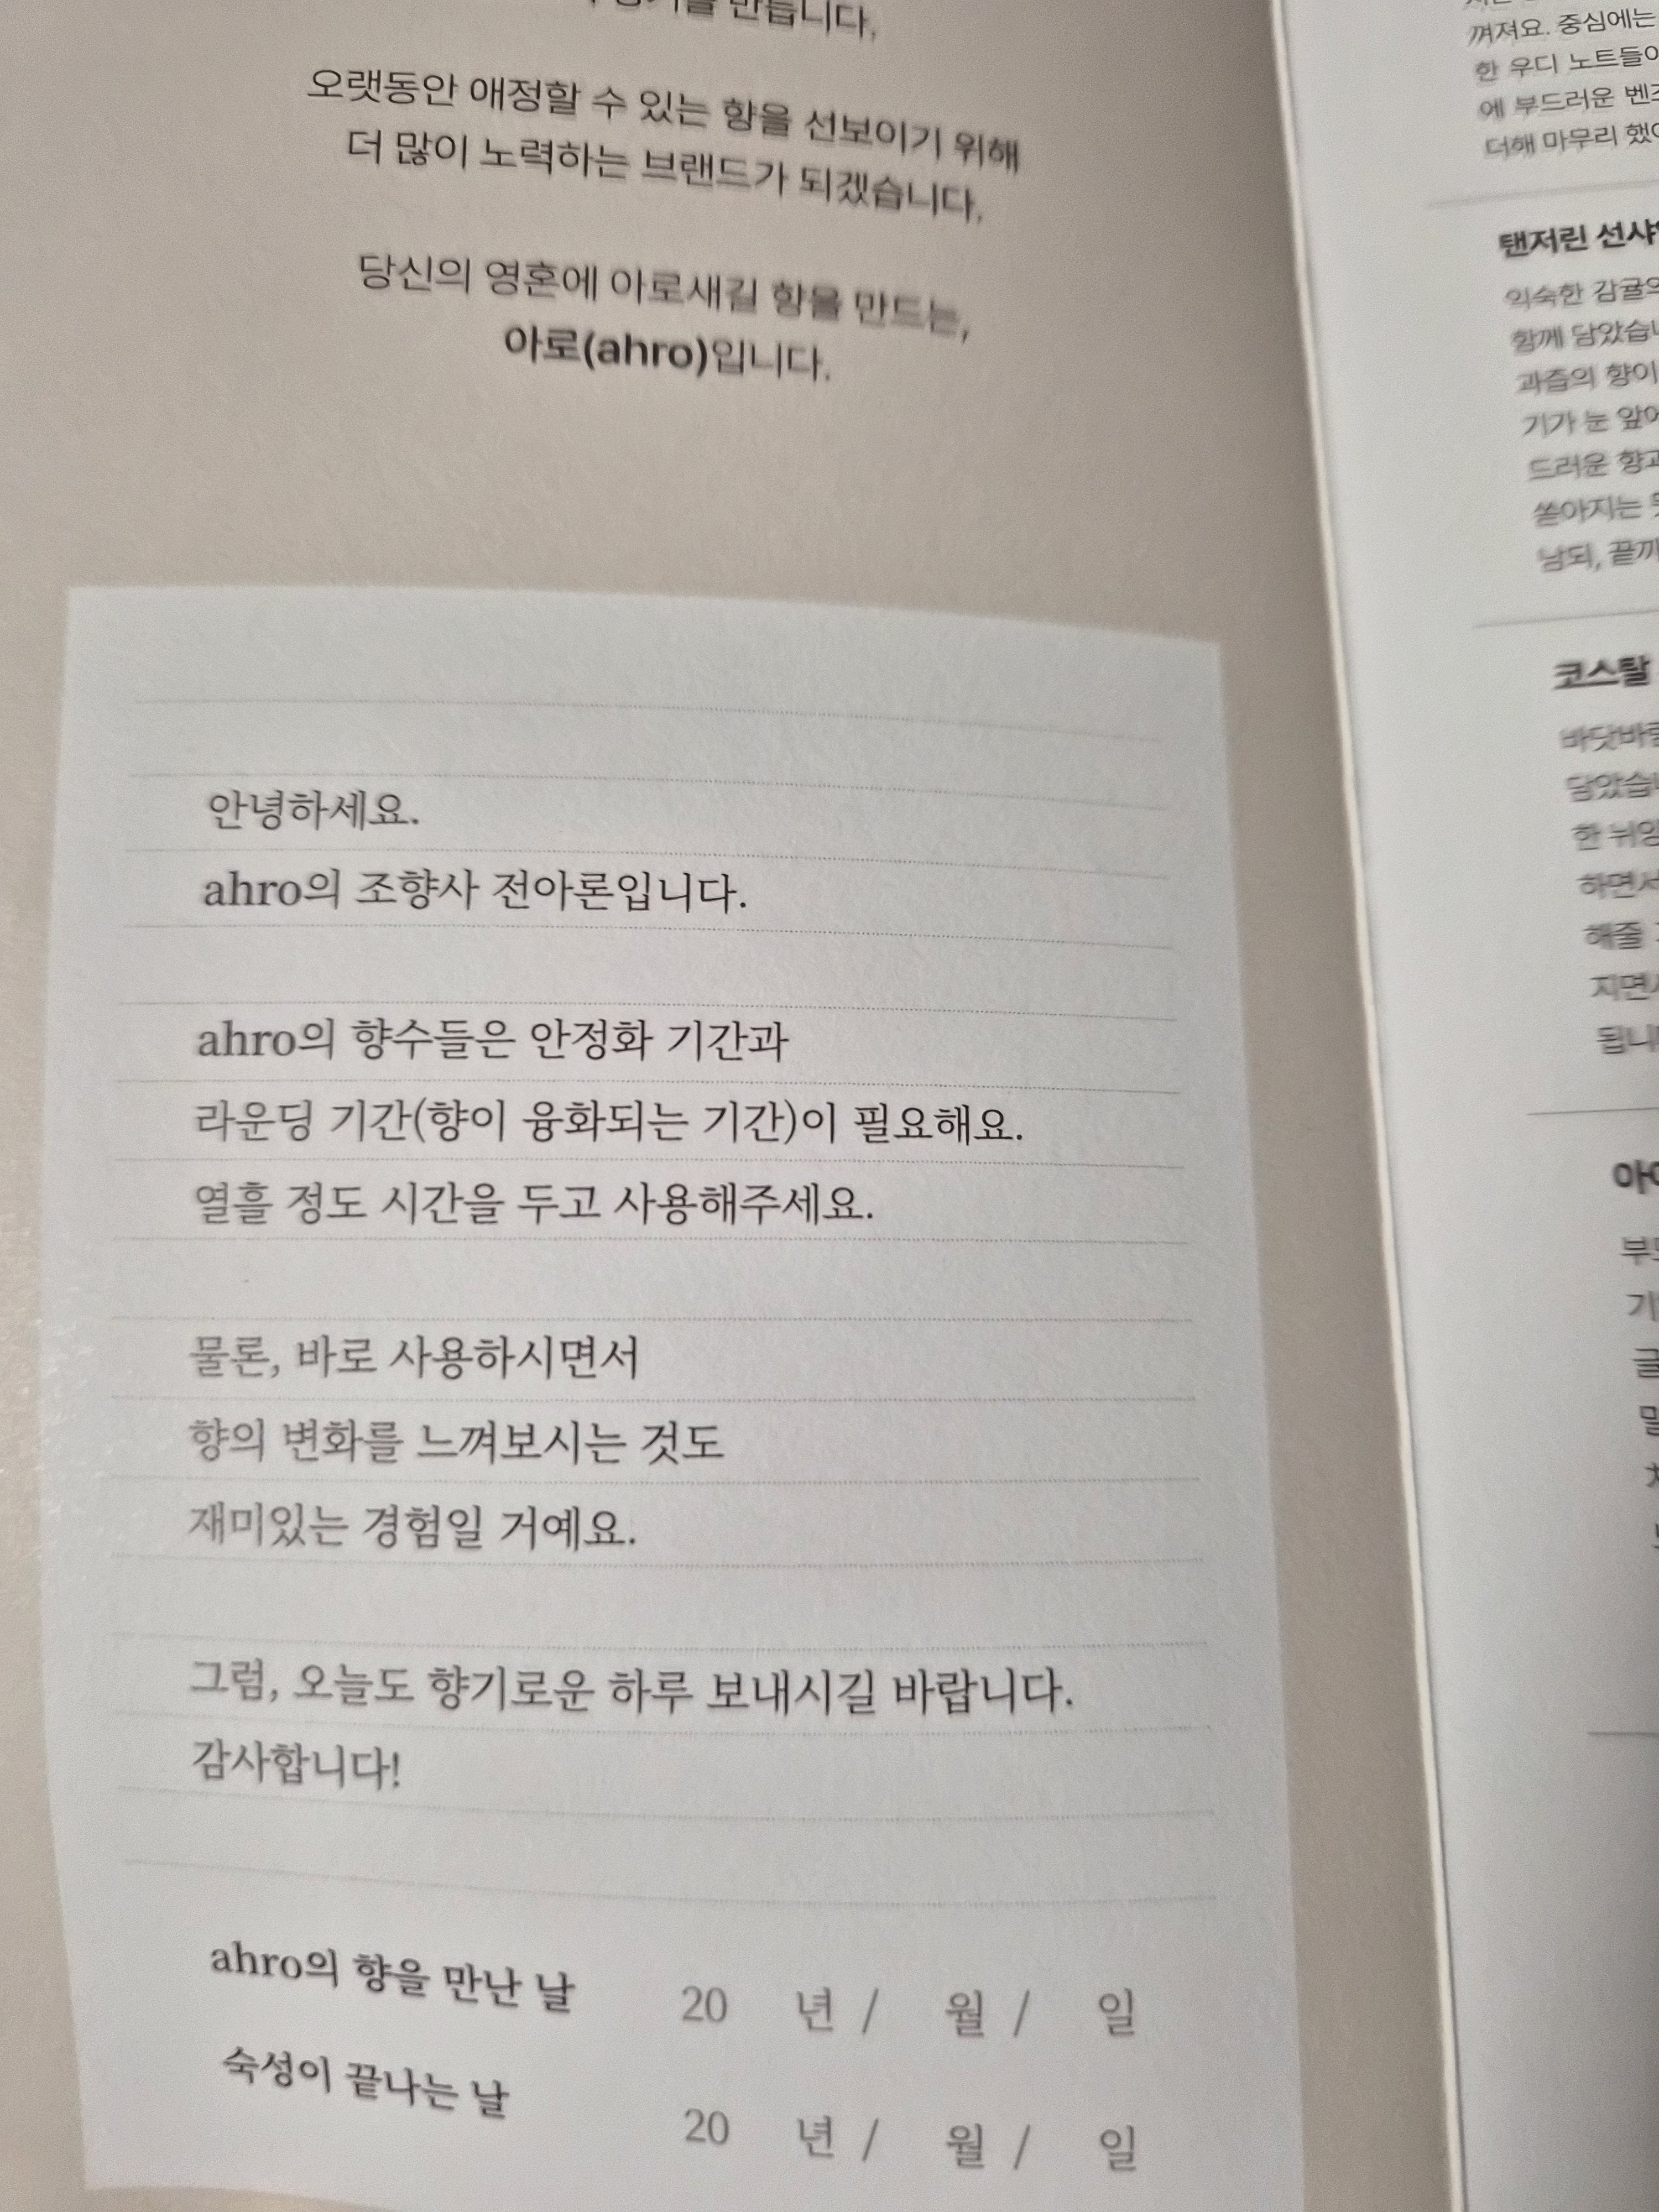 만듭니다.
오랫동안 애정할 수 있는 향을 선보이기 위해
더 많이 노력하는 브랜드가 되겠습니다.
당신의 영혼에 아로새길 향을 만드는,
아로(ahro)입니다.
안녕하세요.
ahro의 조향사 전아론입니다.
ahro의 향수들은 안정화 기간과
라운딩 기간(향이 융화되는 기간)이 필요해요.
열흘 정도 시간을 두고 사용해주세요.
물론, 바로 사용하시면서
향의 변화를 느껴보시는 것도
재미있는 경험일 거예요.
그럼, 오늘도 향기로운 하루 보내시길 바랍니다.
감사합니다!
ahro의 향을 만난 날 20 년 / 월 / 일
숙성이 끝나는 날 20 년 / 월 / 일
껴져요. 중심에는
한 우디 노트들이
에 부드러운
더해 마무리
탠저린
익숙한 감귤의
함께
과즙의 향이
기가 눈
드러운
쏟아지는
남되,
코스탈
한
하면서
해줄